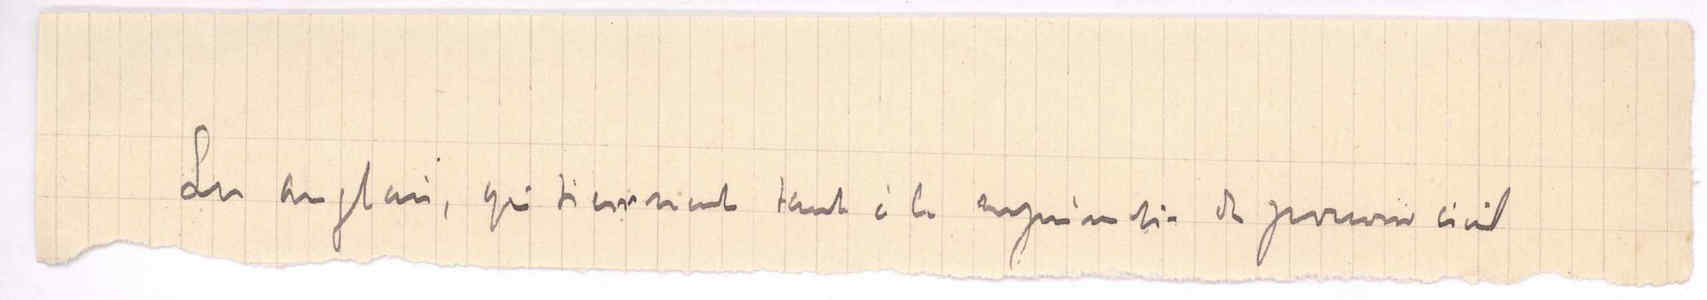 Les anglais, qui tiennent tant à la suprématie du pouvoir civil